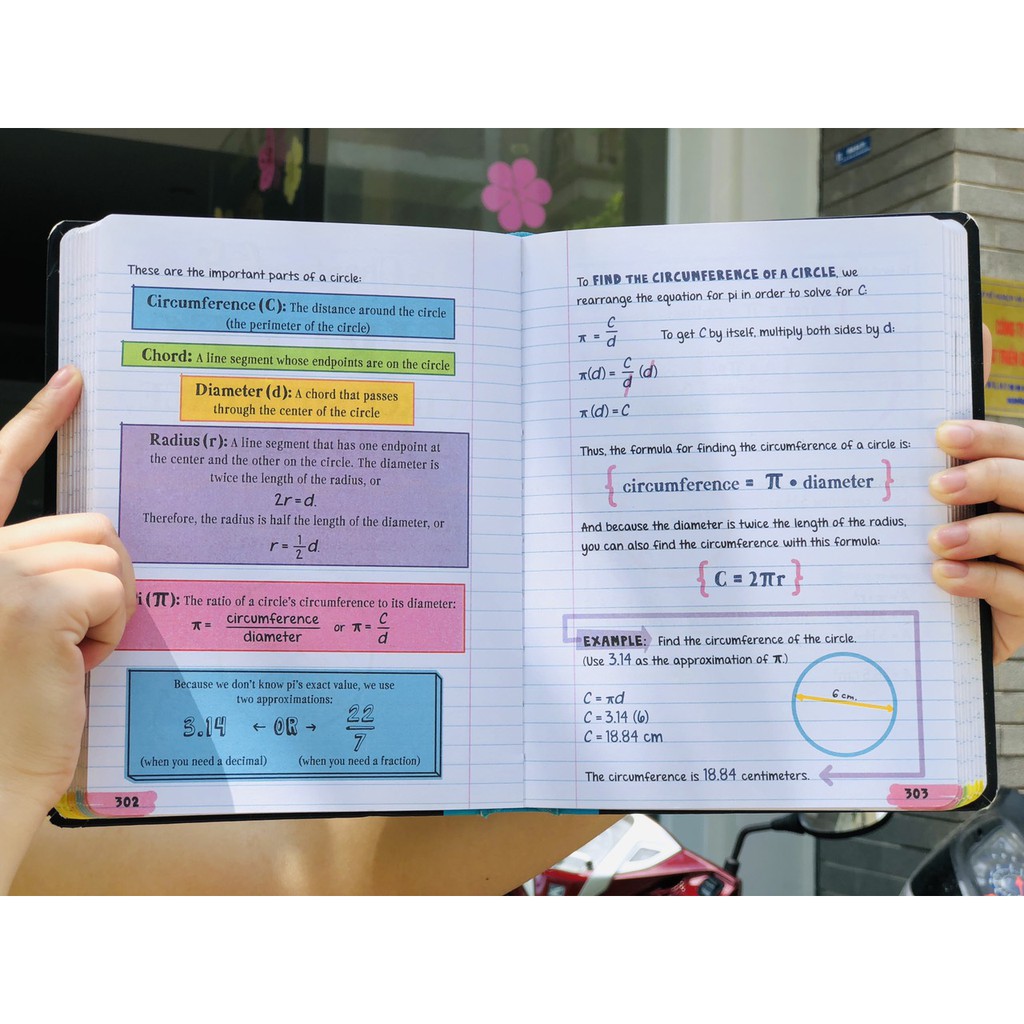 These are the important parts of a circle:
Circumference (C): The distance around the circle
(the perimeter of the circle)
Chord: A line segment whose endpoints are on the circle
Diameter (d): A chord that passes
through the center of the circle
Radius (r): A line segment that has one endpoint at
the center and the other on the circle. The diameter is
twice the length of the radius, or
2r = d.
Therefore, the radius is half the length of the diameter, or
r = 1/2 d.
i (π): The ratio of a circle's circumference to its diameter:
π = circumference/diameter or π = C/d
Because we don't know pi's exact value, we use
two approximations:
3.14 ← OR → 22/7
(when you need a decimal) (when you need a fraction)
302
To FIND THE CIRCUMFERENCE OF A CIRCLE, we
rearrange the equation for pi in order to solve for C:
π = C/d To get C by itself, multiply both sides by d:
π(d) = C/d (d)
π(d) = C
Thus, the formula for finding the circumference of a circle is:
{ circumference = π • diameter }
And because the diameter is twice the length of the radius,
you can also find the circumference with this formula:
{ C = 2πr }
EXAMPLE: Find the circumference of the circle.
(Use 3.14 as the approximation of π.)
6 cm.
C = πd
C = 3.14 (6)
C = 18.84 cm
The circumference is 18.84 centimeters.
303